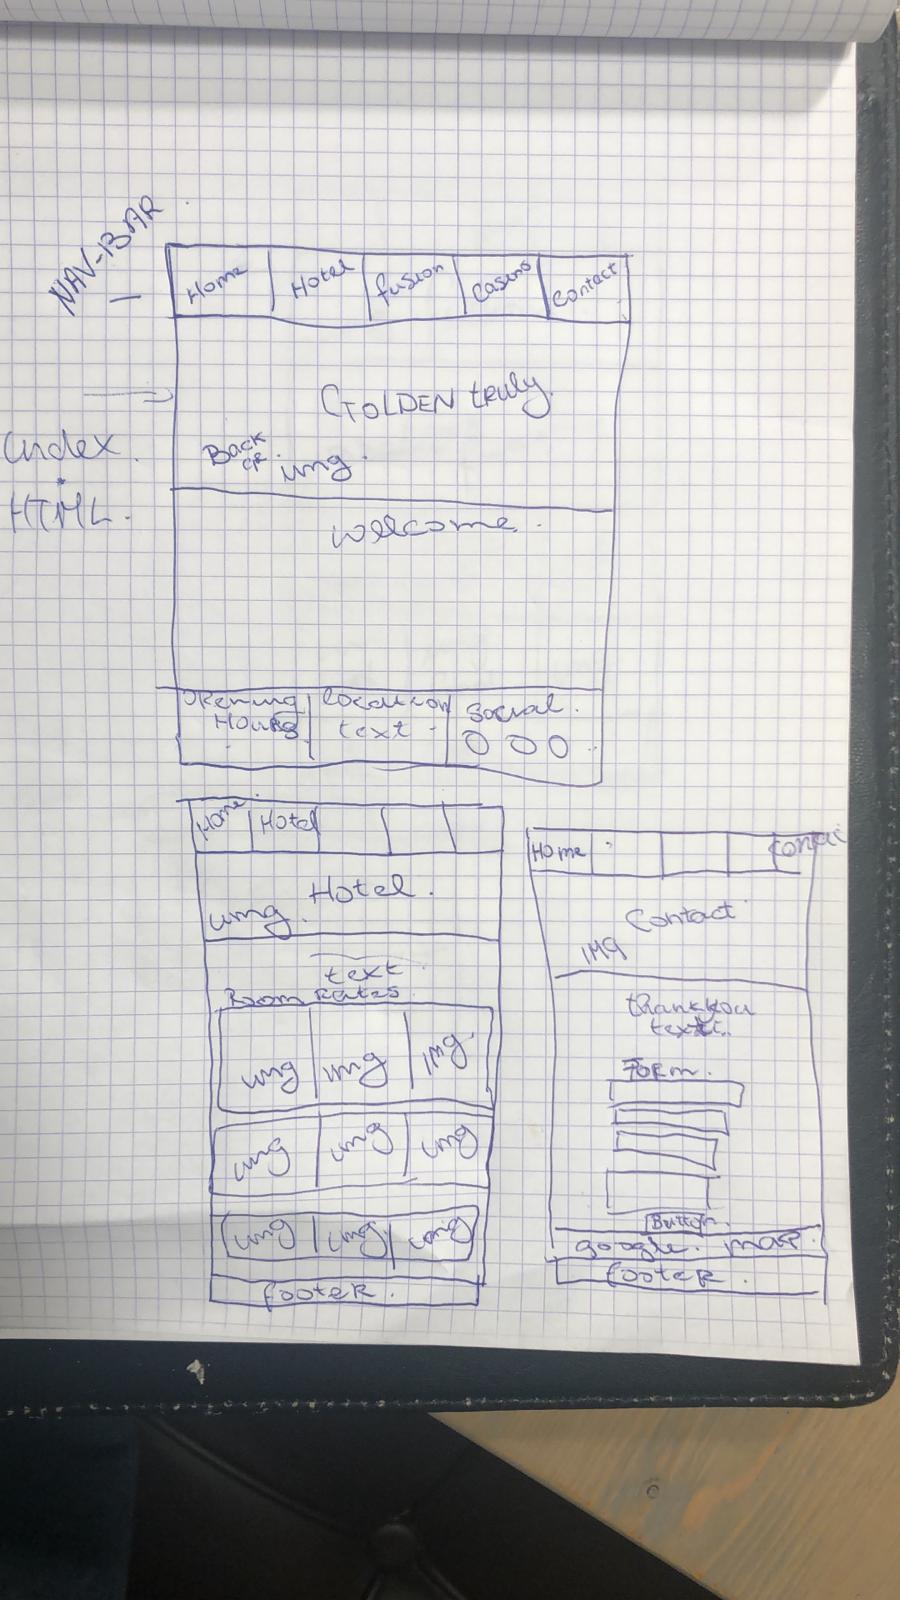 NAV-BAR
Home Hotel fusion Casino Contact
GOLDEN truly
Back
gr. img.
index.
HTML.
Welcome.
Opening
Hours
location
text
Social.
Home Hotel
img. Hotel.
text
Room Rates.
img img img.
img img img
img img img
footer.
Home
Contact
IMG
thank you
text.
Form.
Button.
google. map.
footer.